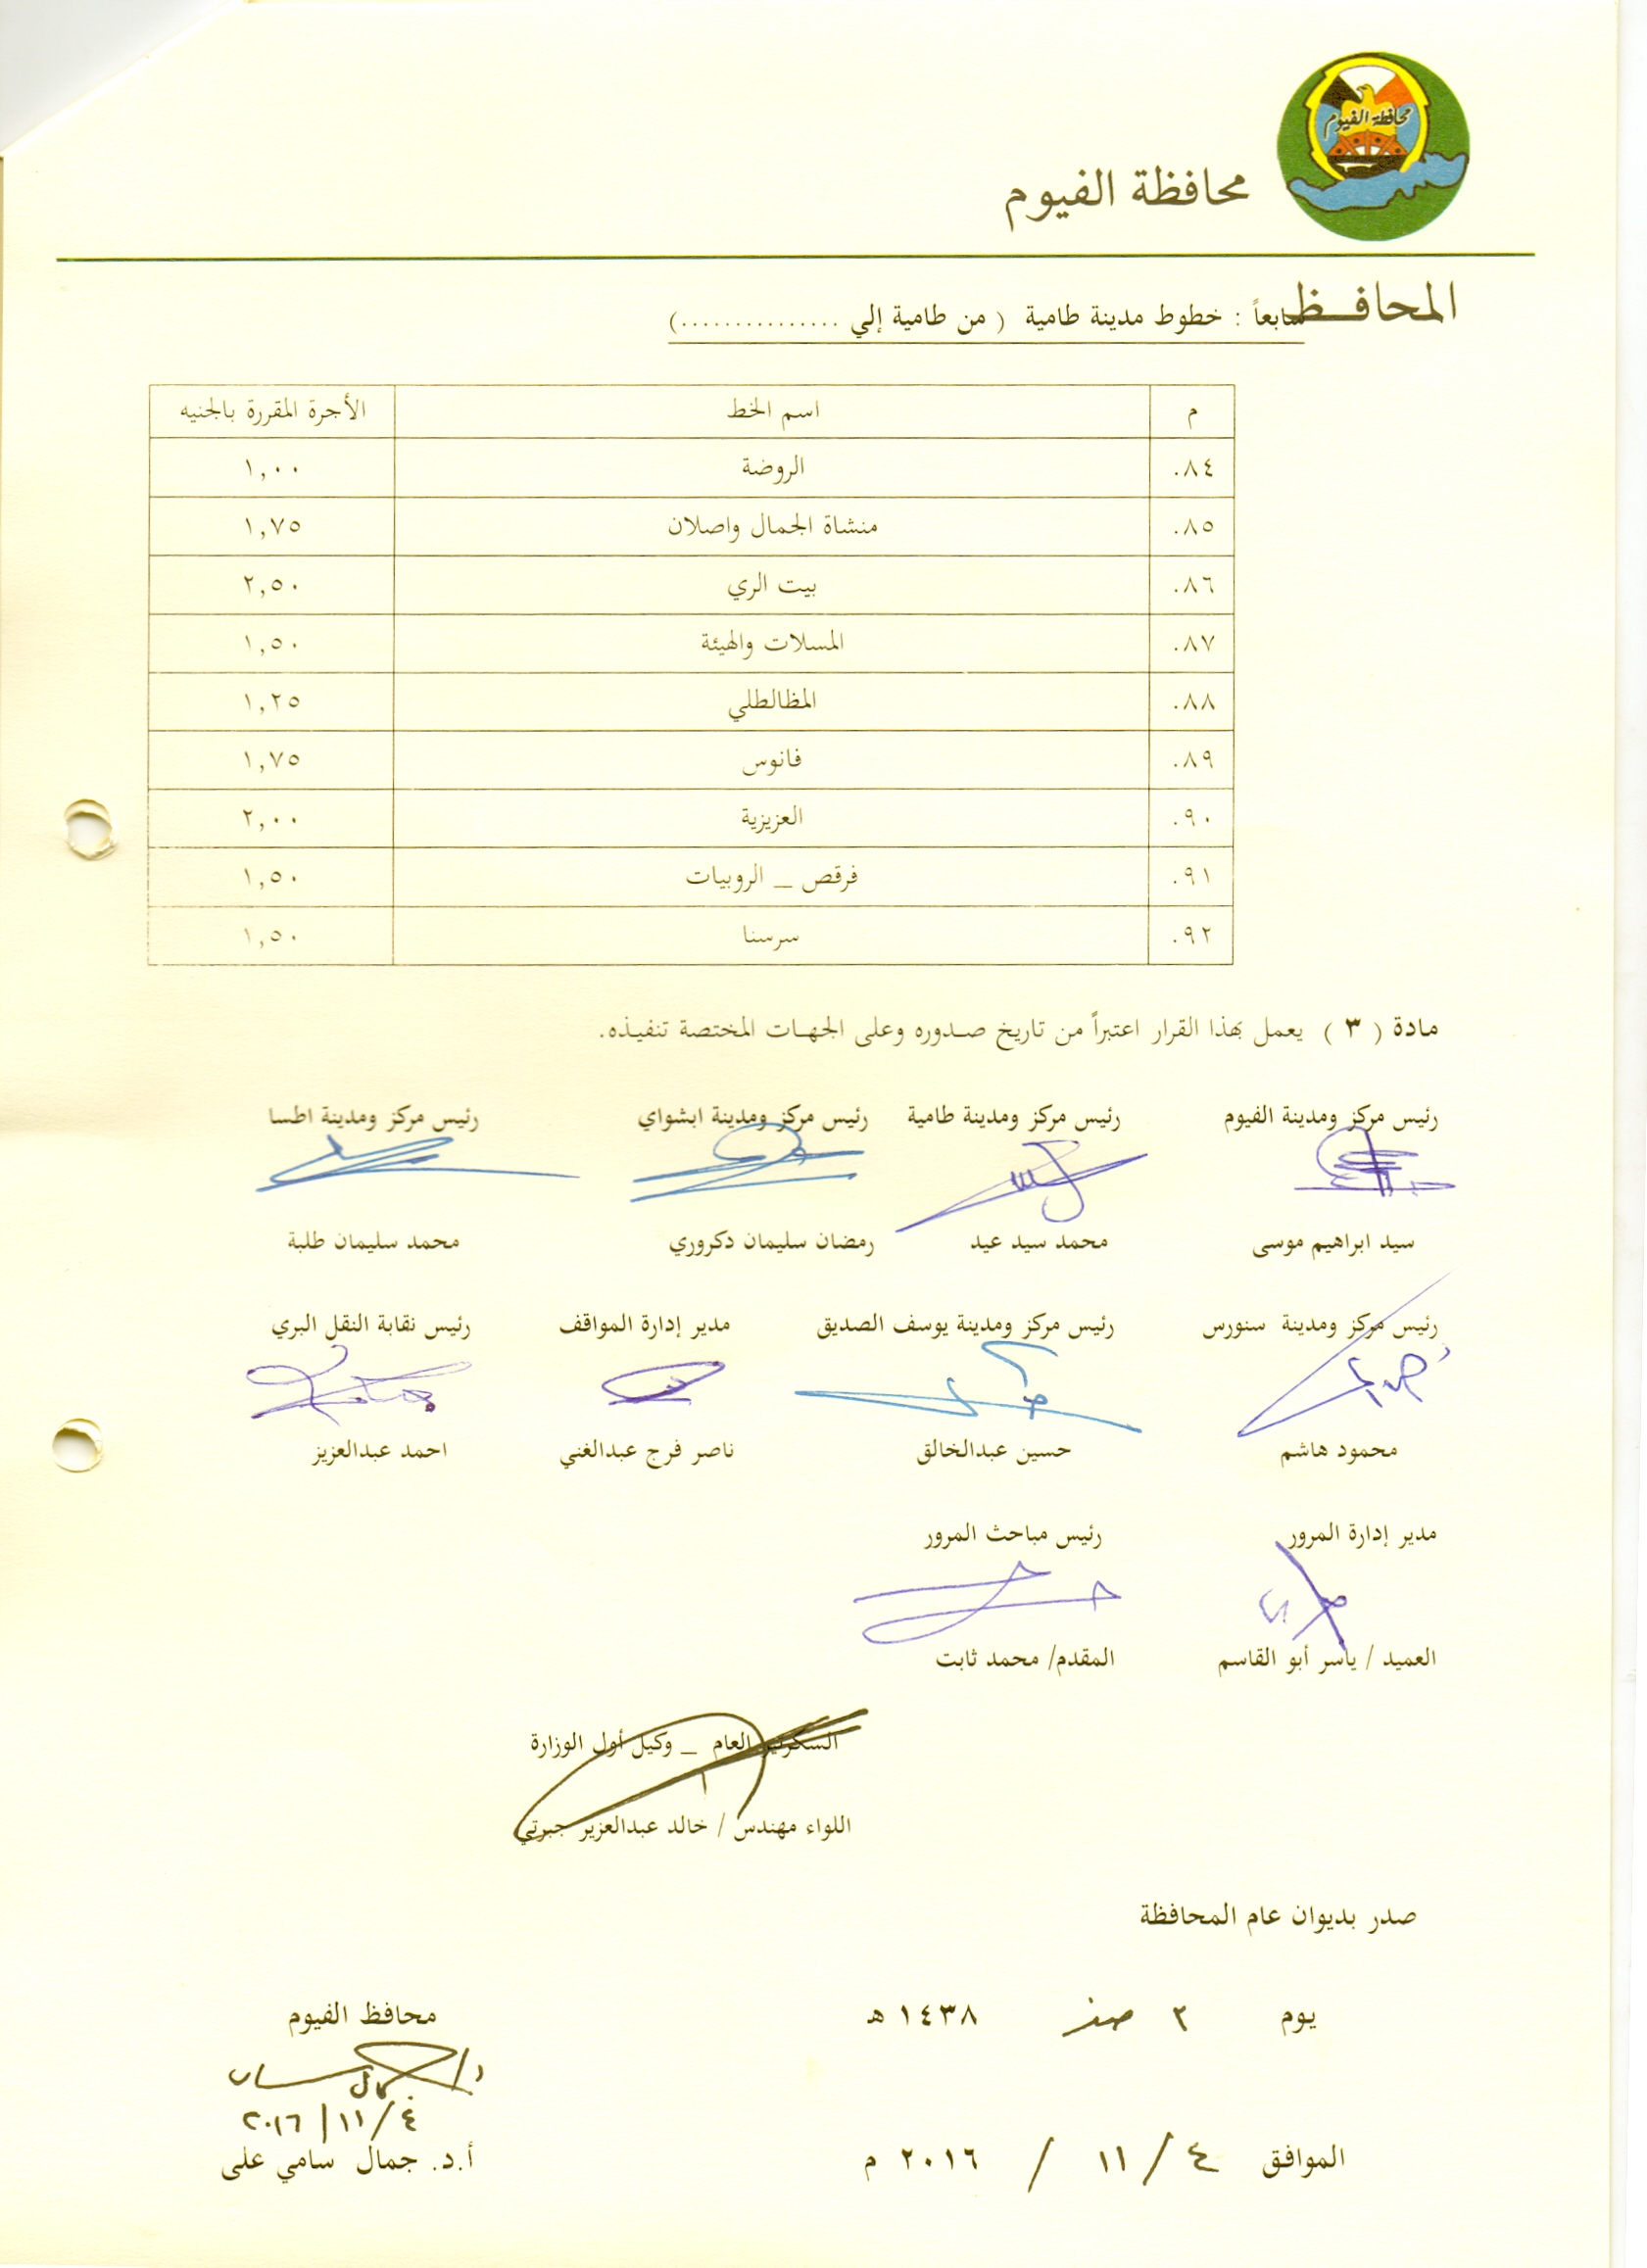 محافظة الفيوم
محافظة الفيوم
المحافظ
سابعاً : خطوط مدينة طامية ( من طامية إلي ...............)
م اسم الخط الأجرة المقررة بالجنيه
٨٤. الروضة ١,٠٠
٨٥. منشاة الجمال واصلان ١,٧٥
٨٦. بيت الري ٢,٥٠
٨٧. المسلات والهيئة ١,٥٠
٨٨. المظالطلي ١,٢٥
٨٩. فانوس ١,٧٥
٩٠. العزيزية ٢,٠٠
٩١. فرقص _ الروبيات ١,٥٠
٩٢. سرسنا ١,٥٠
مادة ( ٣ ) يعمل بهذا القرار اعتبراً من تاريخ صدوره وعلى الجهات المختصة تنفيذه.
رئيس مركز ومدينة الفيوم رئيس مركز ومدينة طامية رئيس مركز ومدينة ابشواي رئيس مركز ومدينة اطسا
سيد ابراهيم موسى محمد سيد عيد رمضان سليمان دكروري محمد سليمان طلبة
رئيس مركز ومدينة سنورس رئيس مركز ومدينة يوسف الصديق مدير إدارة المواقف رئيس نقابة النقل البري
محمود هاشم حسين عبدالخالق ناصر فرج عبدالغني احمد عبدالعزيز
مدير إدارة المرور رئيس مباحث المرور
العميد / ياسر أبو القاسم المقدم/ محمد ثابت
السكرتير العام _ وكيل أول الوزارة
اللواء مهندس / خالد عبدالعزير جبرتي
صدر بديوان عام المحافظة
يوم ٢ صفر ١٤٣٨ ه محافظ الفيوم
٤/ ١١/ ٢٠١٦
الموافق ٤ / ١١ / ٢٠١٦ م أ.د. جمال سامي على